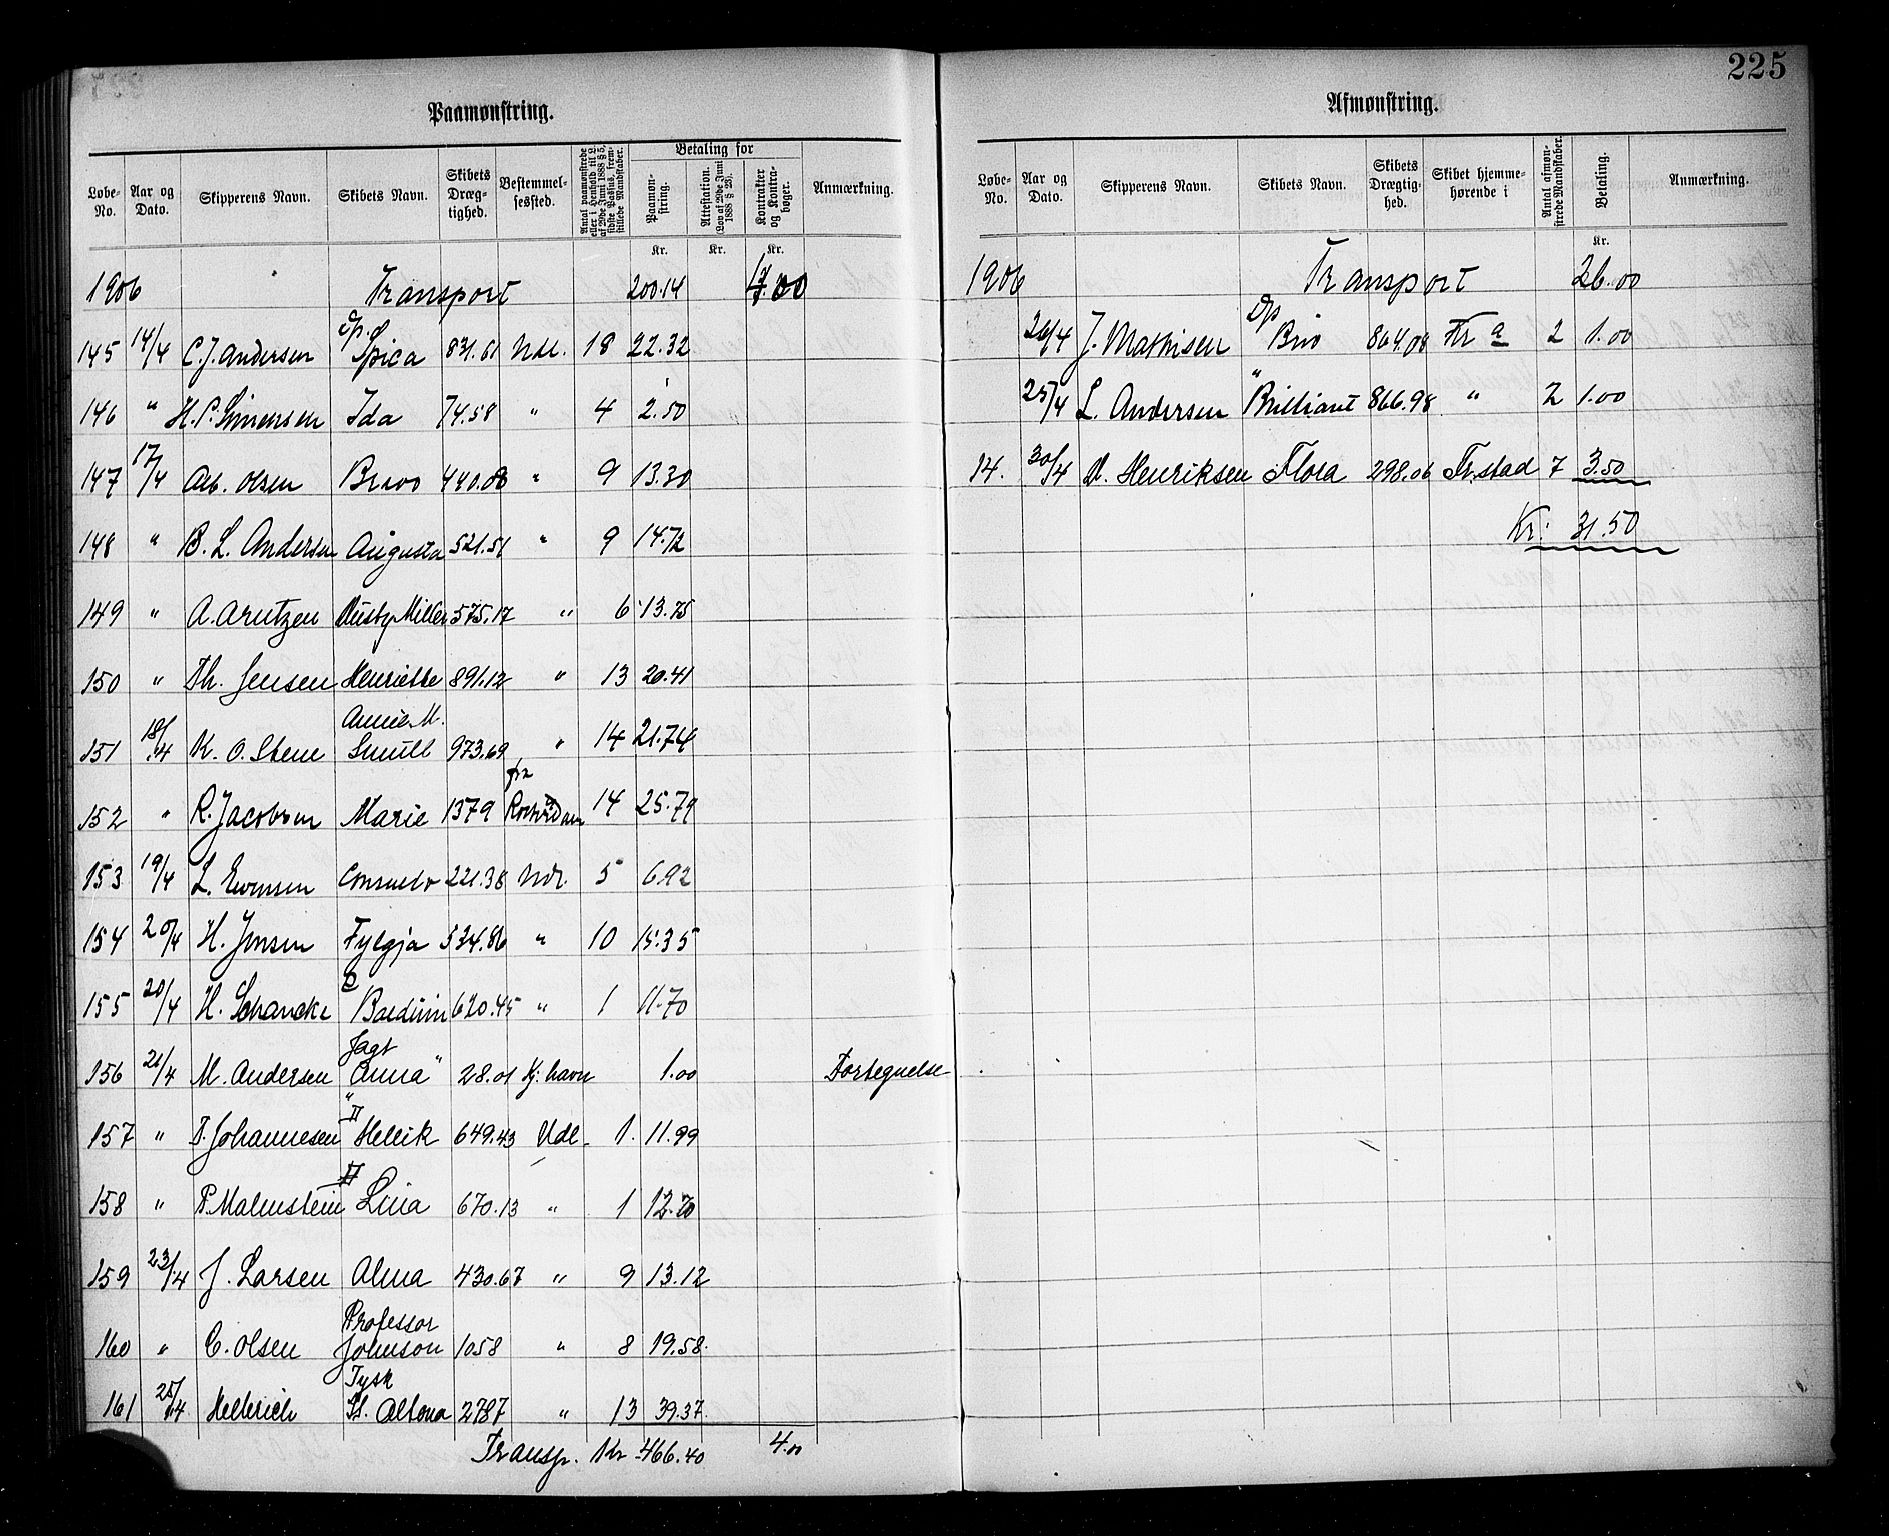 225
Paamønstring.
Løbe-No. | Aar og Dato. | Skipperens Navn. | Skibets Navn. | Skibets Dræg-tighed. | Bestemmel-sessted. | Antal paamønstrede eller i Henhold til L. af 29de Juni 1888 § 5, sidste Passus, frem-stillede Mandskaber. | Betaling for | Paamøn-string. | Attestation. (Lov af 29de Juni 1888 § 28). | Kontrakter og Kontra-bøger. | Anmærkning.
Kr. | Kr. | Kr.
1906 Transport 200.14 4.00
145 14/4 C. J. Andersen Dp. Spica 831.61 Udl. 18 22.32
146 " H. P. Simensen Ida 74.58 " 4 2.50
147 17/4 Alb. Olsen Bravo 440.08 " 9 13.30
148 " B. L. Andersen Augusta 521.51 " 9 14.72
149 " A. Arntzen Husby Miller 575.17 " 6 13.75
150 " Th. Jensen Henriette 891.12 " 13 20.41
151 18/4 K. O. Stene Annie M. Smull 973.69 " 14 21.74
152 " R. Jacobsen Marie 1379 fra Rotterdam 14 25.79
153 19/4 L. Evensen Consuelo 221.38 Udl. 5 6.92
154 20/4 H. Jensen Fylgja 534.86 " 10 15.35
155 20/4 H. Schancke Balduin 620.45 " 1 11.70
156 21/4 M. Andersen Jagt "Anna" 28.01 Kj.havn 1.00 Fortegnelse
157 " T. Johannesen Hellik 649.43 Udl. 1. 11.99
158 " P. Malmstein Lina 670.13 " 1 12.20
159 23/4 J. Larsen Alma 430.67 " 9 13.12
160 " C. Olsen Professor Johnson 1058 " 8 19.58.
161 25/4 Hellerich Tysk St. Altona 2787 " 13 39.37.
Transp. Kr 466.40 4.00
Afmønstring.
Løbe-No. | Aar og Dato. | Skipperens Navn. | Skibets Navn. | Skibets Drægtig-hed. | Skibet hjemme-hørende i | Antal afmøn-strede Mandskaber. | Betaling. | Anmærkning.
Kr.
1906 Transport 26.00
26/4 J. Mathisen Dp Brio 864.08 Kr a 2 1.00
25/4 L. Andersen " Brilliant 866.98 " 2 1.00
14. 30/4 M. Henriksen Flora 298.06 Fr.stad 7 3.50
Kr: 31.50